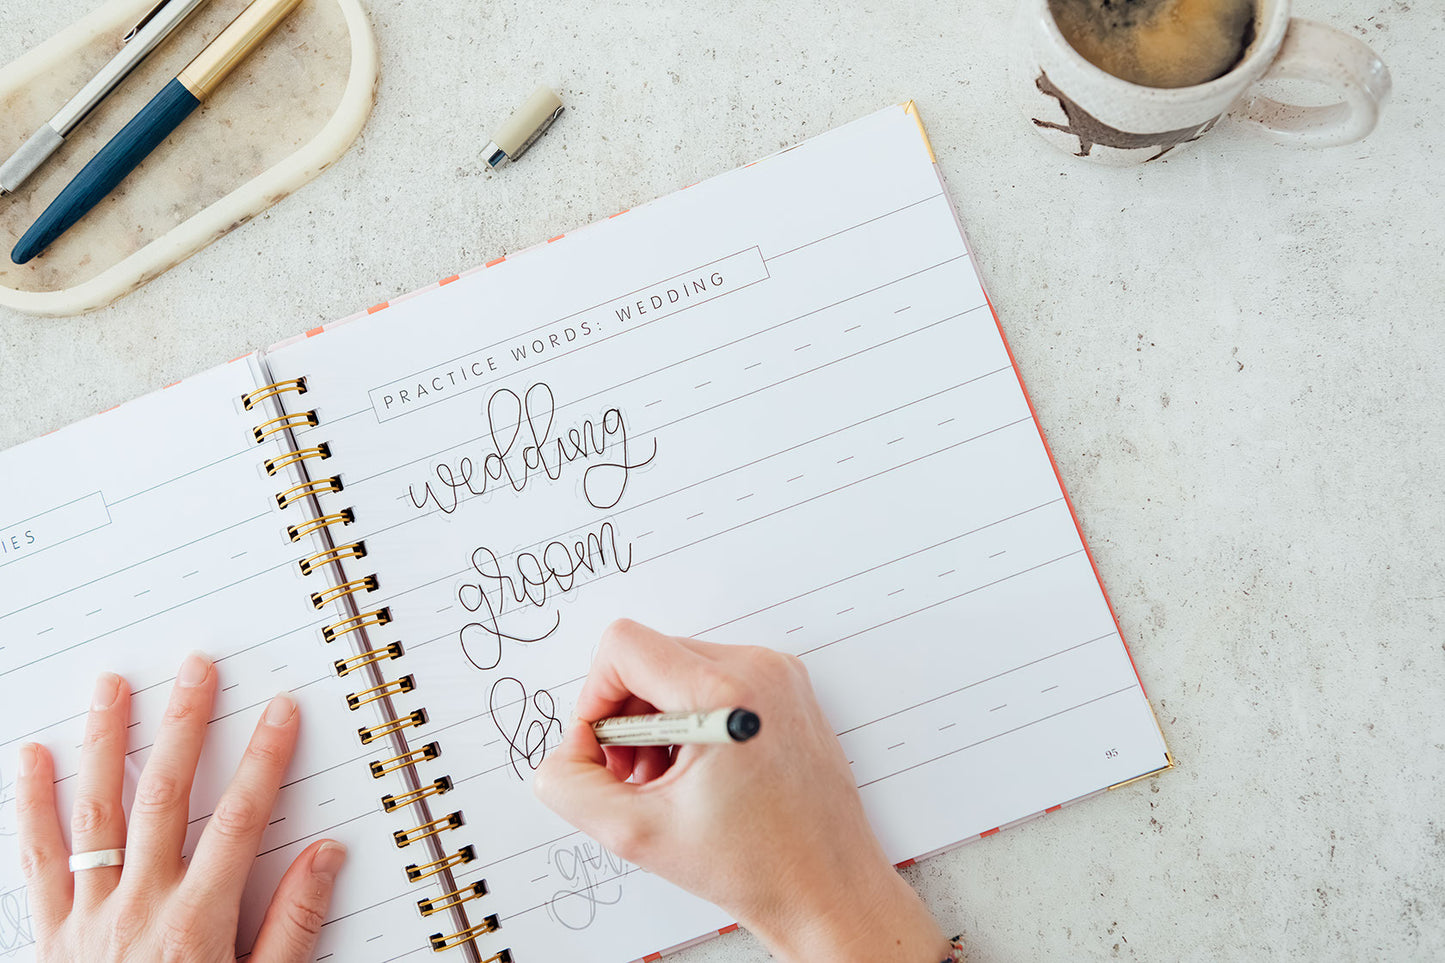 PRACTICE WORDS: WEDDING
wedding
groom
br
IES
95